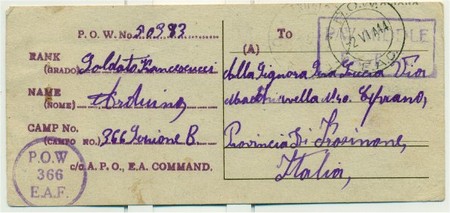 P.O.W. No. 20983
RANK
(GRADO) Soldato Francescucci
NAME
(NOME) Arduino
CAMP No.
(CAMPO No.) 366 Sezione B.
c/o A.P.O., E.A. COMMAND.
P.O.W
366
E.A.F.
To
(A)
Alla Signora Lucia Via
No. Cipriano,
Provincia Di Frosinone,
Italia,